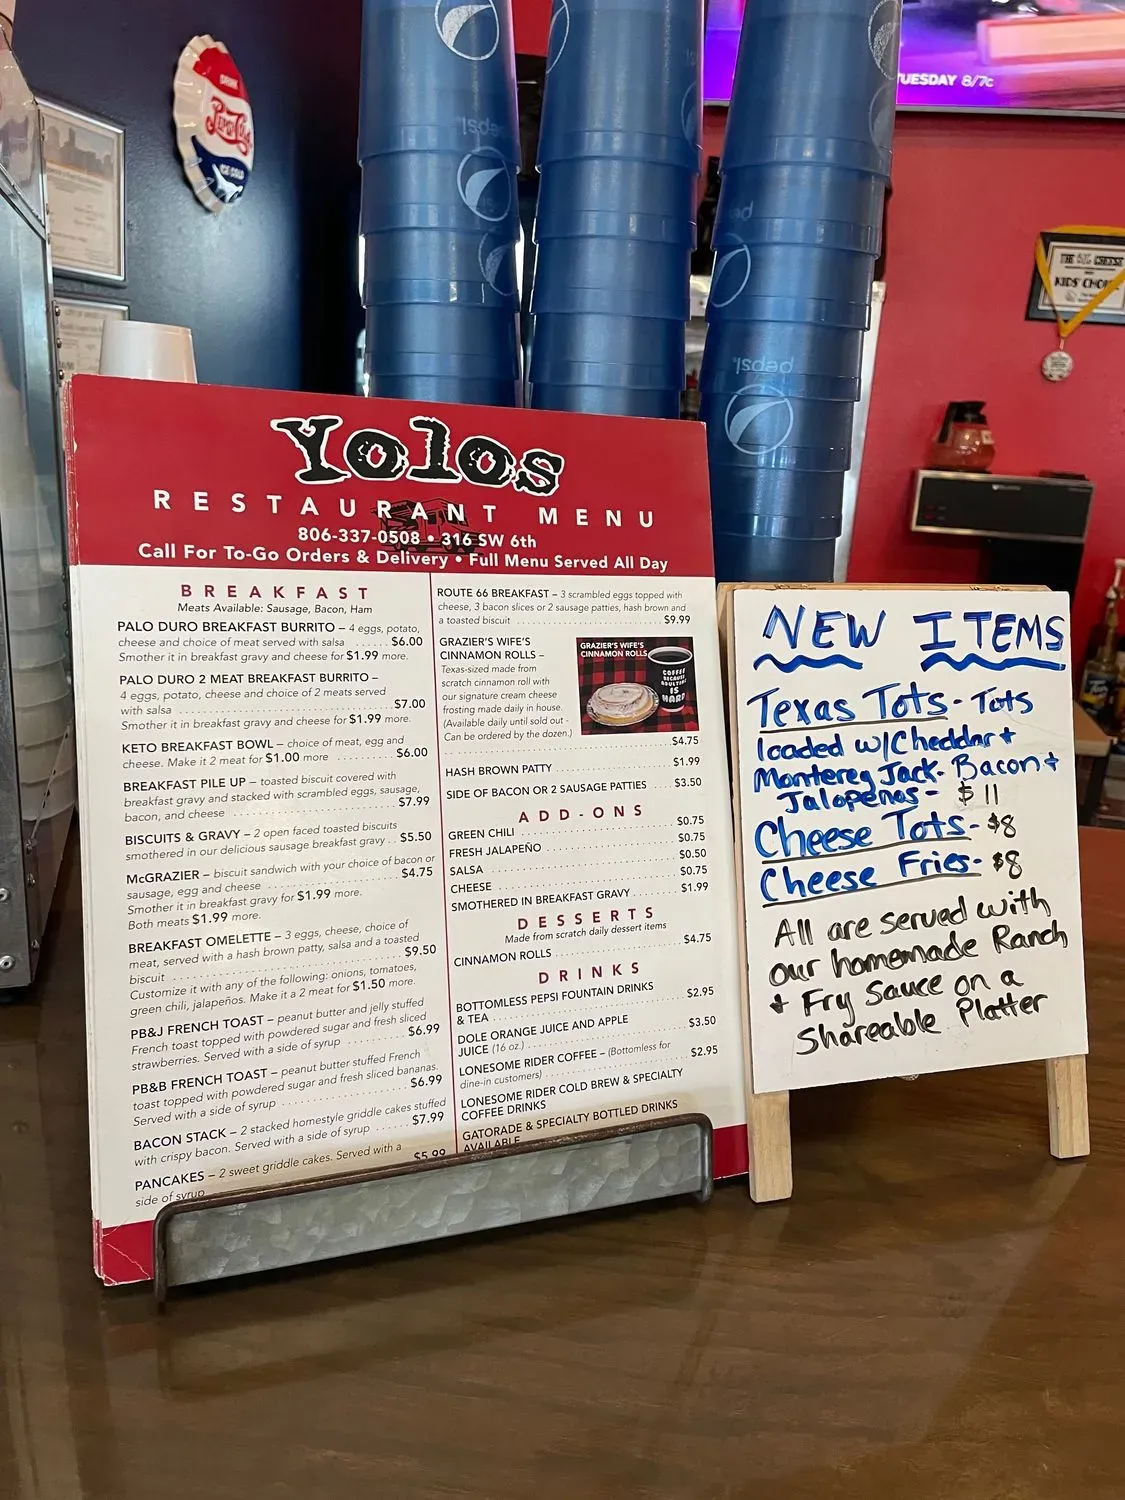 DRINK
PEPSI-COLA
ICE COLD
pepsi
pepsi
pepsi
TUESDAY 8/7c
THE BIG CHEESE
KIDS' CHOICE
Yolos
RESTAURANT MENU
806-337-0508 • 316 SW 6th
Call For To-Go Orders & Delivery • Full Menu Served All Day
BREAKFAST
Meats Available: Sausage, Bacon, Ham
PALO DURO BREAKFAST BURRITO – 4 eggs, potato,
cheese and choice of meat served with salsa ...... $6.00
Smother it in breakfast gravy and cheese for $1.99 more.
PALO DURO 2 MEAT BREAKFAST BURRITO –
4 eggs, potato, cheese and choice of 2 meats served
with salsa ...... $7.00
Smother it in breakfast gravy and cheese for $1.99 more.
KETO BREAKFAST BOWL – choice of meat, egg and
cheese. Make it 2 meat for $1.00 more ...... $6.00
BREAKFAST PILE UP – toasted biscuit covered with
breakfast gravy and stacked with scrambled eggs, sausage,
bacon, and cheese ...... $7.99
BISCUITS & GRAVY – 2 open faced toasted biscuits
smothered in our delicious sausage breakfast gravy .. $5.50
McGRAZIER – biscuit sandwich with your choice of bacon or
sausage, egg and cheese ...... $4.75
Smother it in breakfast gravy for $1.99 more.
Both meats $1.99 more.
BREAKFAST OMELETTE – 3 eggs, cheese, choice of
meat, served with a hash brown patty, salsa and a toasted
biscuit ...... $9.50
Customize it with any of the following: onions, tomatoes,
green chili, jalapeños. Make it a 2 meat for $1.50 more.
PB&J FRENCH TOAST – peanut butter and jelly stuffed
French toast topped with powdered sugar and fresh sliced
strawberries. Served with a side of syrup ...... $6.99
PB&B FRENCH TOAST – peanut butter stuffed French
toast topped with powdered sugar and fresh sliced bananas.
Served with a side of syrup ...... $6.99
BACON STACK – 2 stacked homestyle griddle cakes stuffed
with crispy bacon. Served with a side of syrup ...... $7.99
PANCAKES – 2 sweet griddle cakes. Served with a
side of syrup $5.99
ROUTE 66 BREAKFAST – 3 scrambled eggs topped with
cheese, 3 bacon slices or 2 sausage patties, hash brown and
a toasted biscuit ...... $9.99
GRAZIER'S WIFE'S
CINNAMON ROLLS –
Texas-sized made from
scratch cinnamon roll with
our signature cream cheese
frosting made daily in house.
(Available daily until sold out -
Can be ordered by the dozen.)
...... $4.75
GRAZIER'S WIFE'S
CINNAMON ROLLS
COFFEE
BECAUSE
ADULTING
IS
HARD
HASH BROWN PATTY ...... $1.99
SIDE OF BACON OR 2 SAUSAGE PATTIES .... $3.50
ADD-ONS
GREEN CHILI ...... $0.75
FRESH JALAPEÑO ...... $0.75
SALSA ...... $0.50
CHEESE ...... $0.75
SMOTHERED IN BREAKFAST GRAVY ...... $1.99
DESSERTS
Made from scratch daily dessert items
CINNAMON ROLLS ...... $4.75
DRINKS
BOTTOMLESS PEPSI FOUNTAIN DRINKS
& TEA ...... $2.95
DOLE ORANGE JUICE AND APPLE
JUICE (16 oz.) ...... $3.50
LONESOME RIDER COFFEE – (Bottomless for
dine-in customers) ...... $2.95
LONESOME RIDER COLD BREW & SPECIALTY
COFFEE DRINKS
GATORADE & SPECIALTY BOTTLED DRINKS
AVAILABLE
NEW ITEMS
Texas Tots - Tots
loaded w/Cheddar +
Monterey Jack - Bacon +
Jalopeños - $11
Cheese Tots - $8
Cheese Fries - $8
All are served with
our homemade Ranch
+ Fry Sauce on a
Shareable Platter